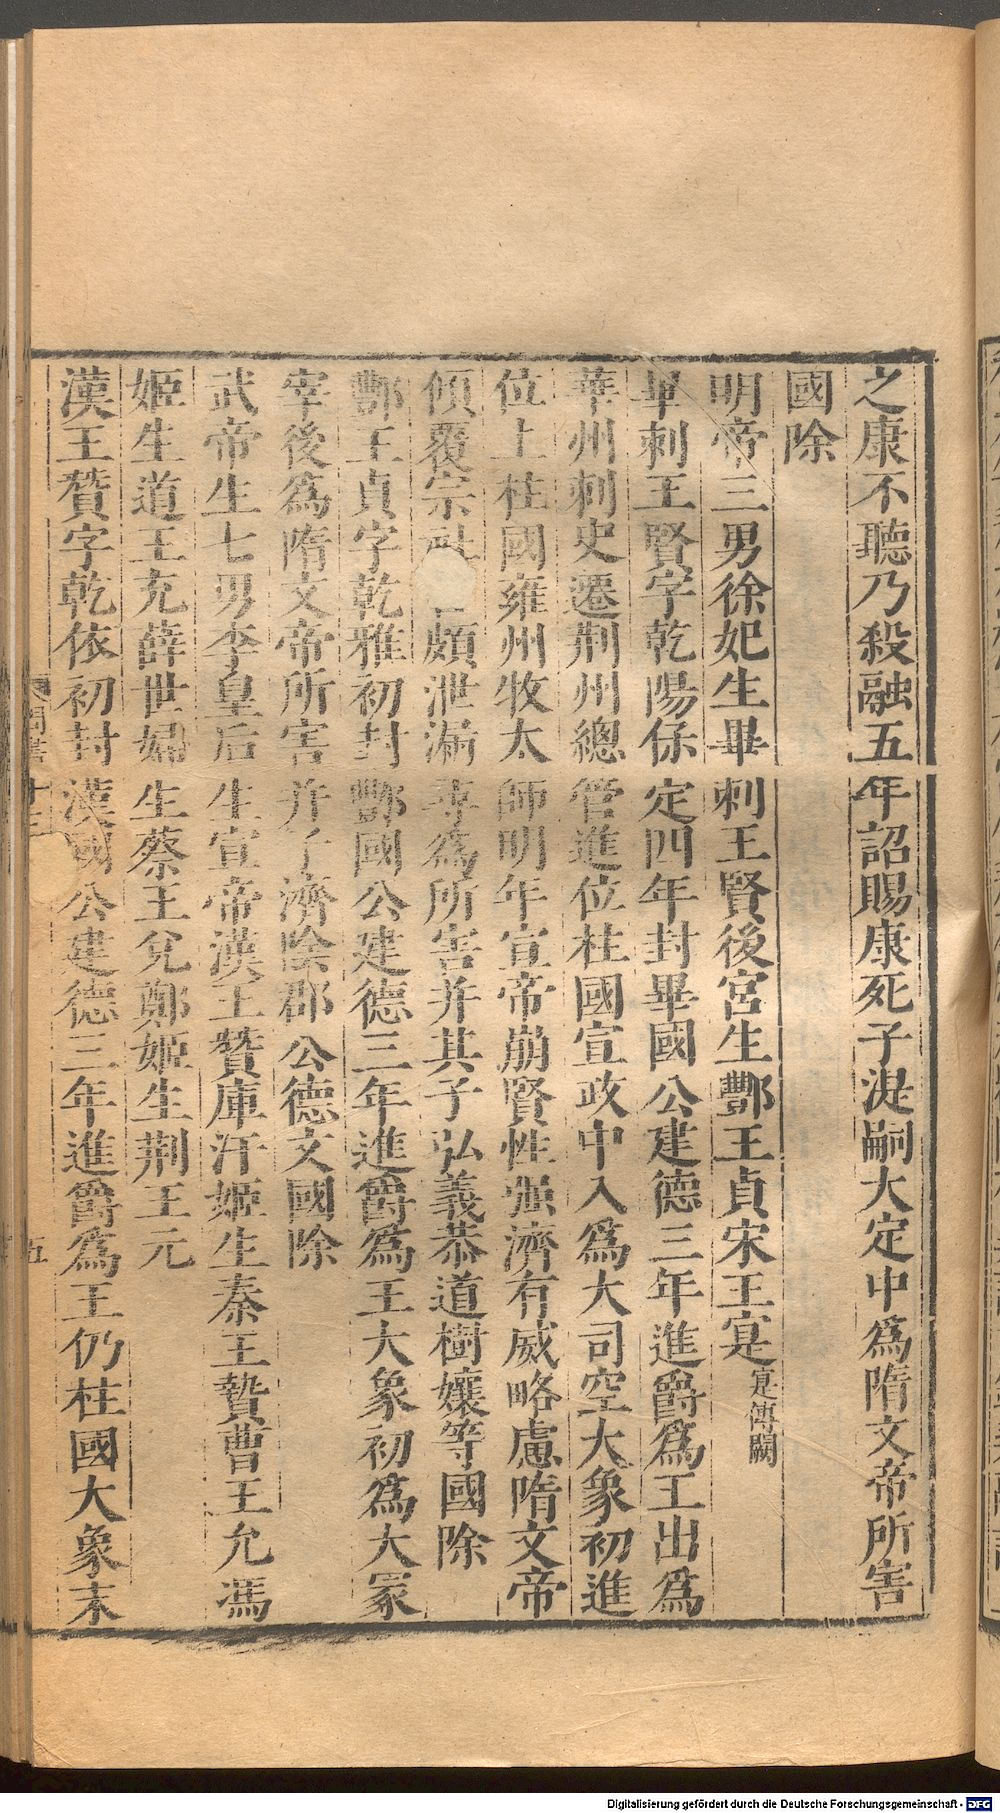 之康不聽乃殺融五年詔賜康死子湜嗣大定中爲隋文帝所害
國除
明帝三男徐妃生畢剌王賢後宮生酆王貞宋王寔寔傳闕
畢剌王賢字乾陽保定四年封畢國公建德三年進爵爲王出爲
華州刺史遷荆州總管進位柱國宣政中入爲大司空大象初進
位上柱國雍州牧太師明年宣帝崩賢性强濟有威略慮隋文帝
傾覆宗社頗泄漏尋爲所害并其子弘義恭道樹孃等國除
酆王貞字乾雅初封酆國公建德三年進爵爲王大象初爲大冢
宰後爲隋文帝所害并子濟陰郡公德文國除
武帝生七男李皇后生宣帝漢王贊庫汗姬生秦王贄曹王允馮
姬生道王充薛世婦生蔡王兌鄭姬生荆王元
漢王贊字乾依初封漢國公建德三年進爵爲王仍柱國大象末
周書
五
Digitalisierung gefördert durch die Deutsche Forschungsgemeinschaft - DFG